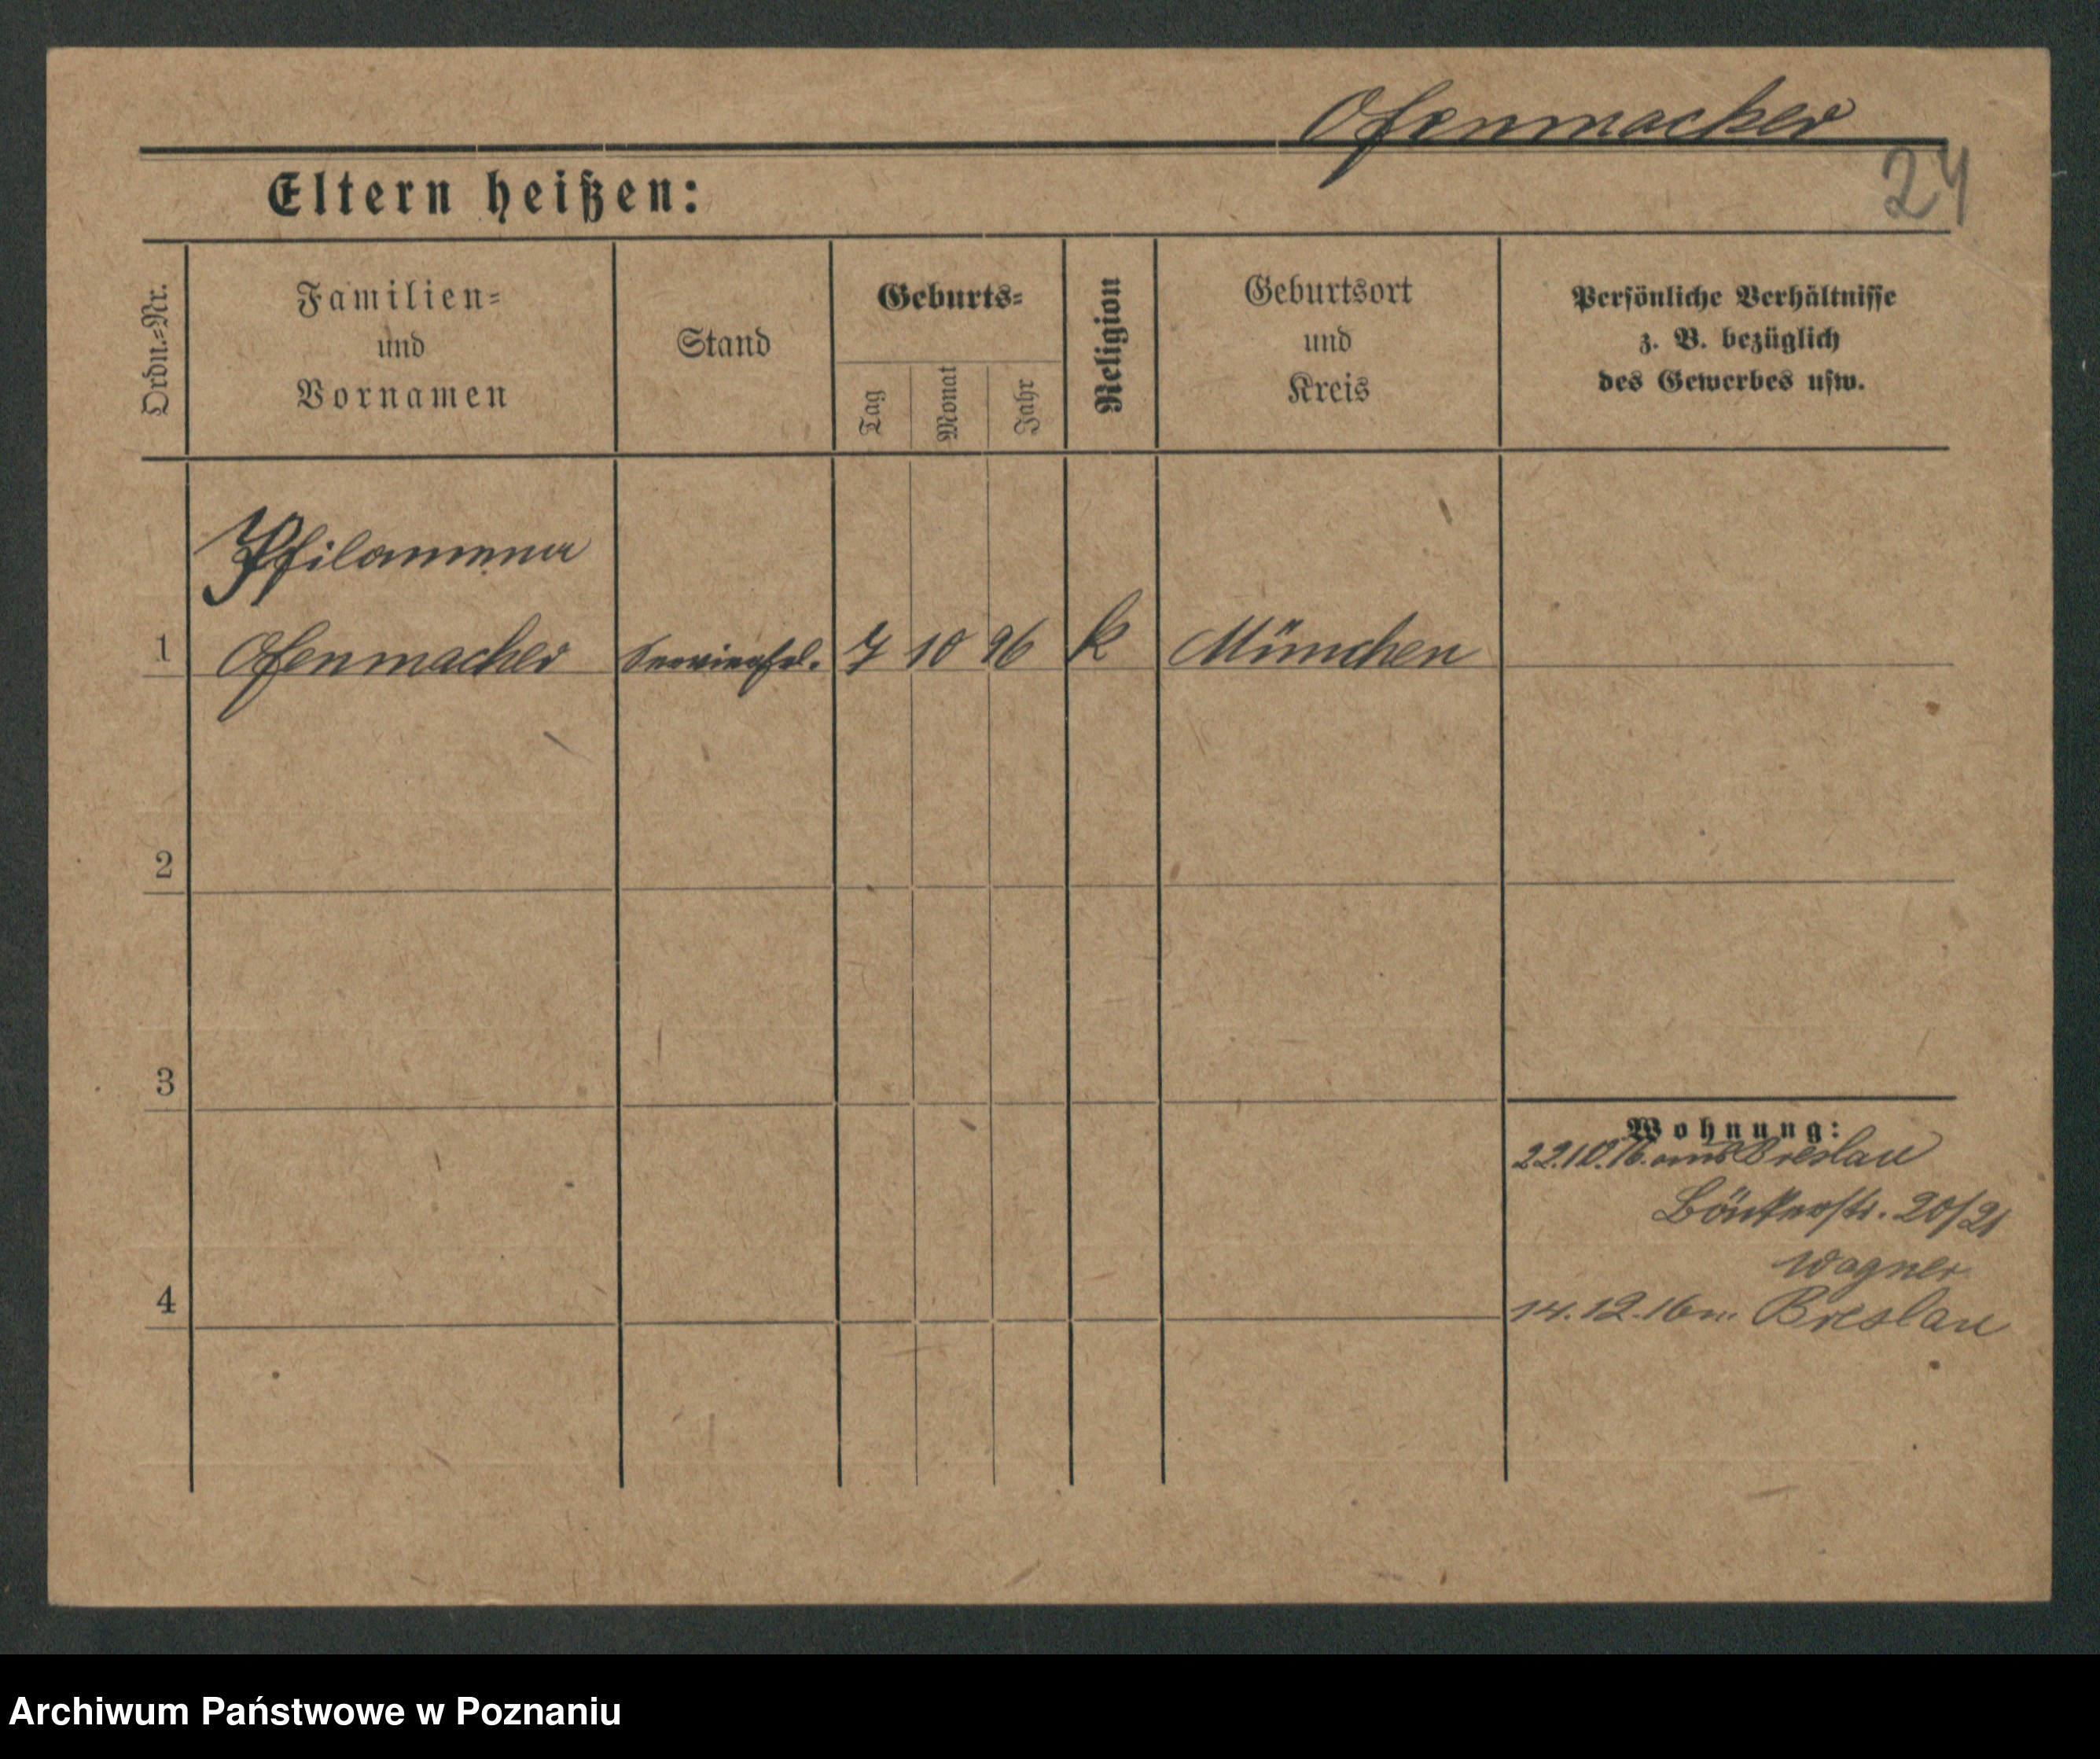 Ofenmacher
24
Eltern heißen:
Ordn.=Nr.
Familien=
und
Vornamen
Stand
Geburts=
Tag
Monat
Jahr
Religion
Geburtsort
und
Kreis
Persönliche Verhältnisse
z. B. bezüglich
des Gewerbes usw.
1
Ofenmacher
7 10 96 k München
2
3
4
Wohnung:
22.10.16. aus Breslau
20/21
Wagner
14.12.16 n. Breslau
Archiwum Państwowe w Poznaniu